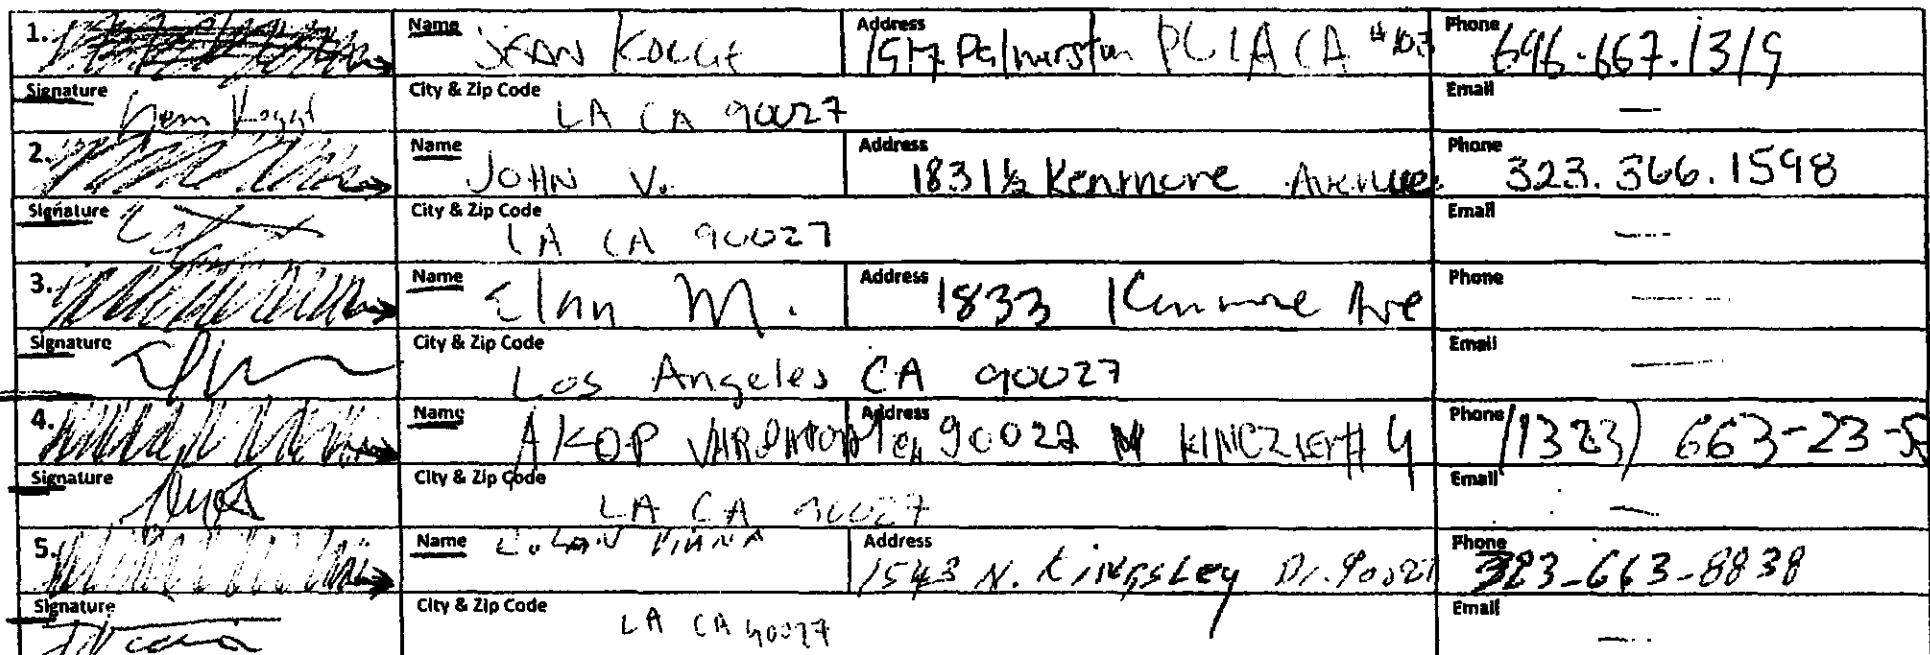 1. Name JEAN Address PL LA CA Phone 696.667.1319
Signature City & Zip Code LA CA 90027 Email —
2. Name JOHN V. Address 1831½ Kenmore Avenue Phone 323.366.1598
Signature City & Zip Code LA CA 90027 Email —
3. Name M. Address 1833 Kenmore Ave Phone —
Signature City & Zip Code Los Angeles CA 90027 Email —
4. Name AKOP Address 90027 N # 4 Phone (323) 663-23-
Signature City & Zip Code LA CA 90027 Email —
5. Name Address 1543 N. Kingsley Dr. 90027 Phone 323-663-8838
Signature City & Zip Code LA CA 90027 Email —